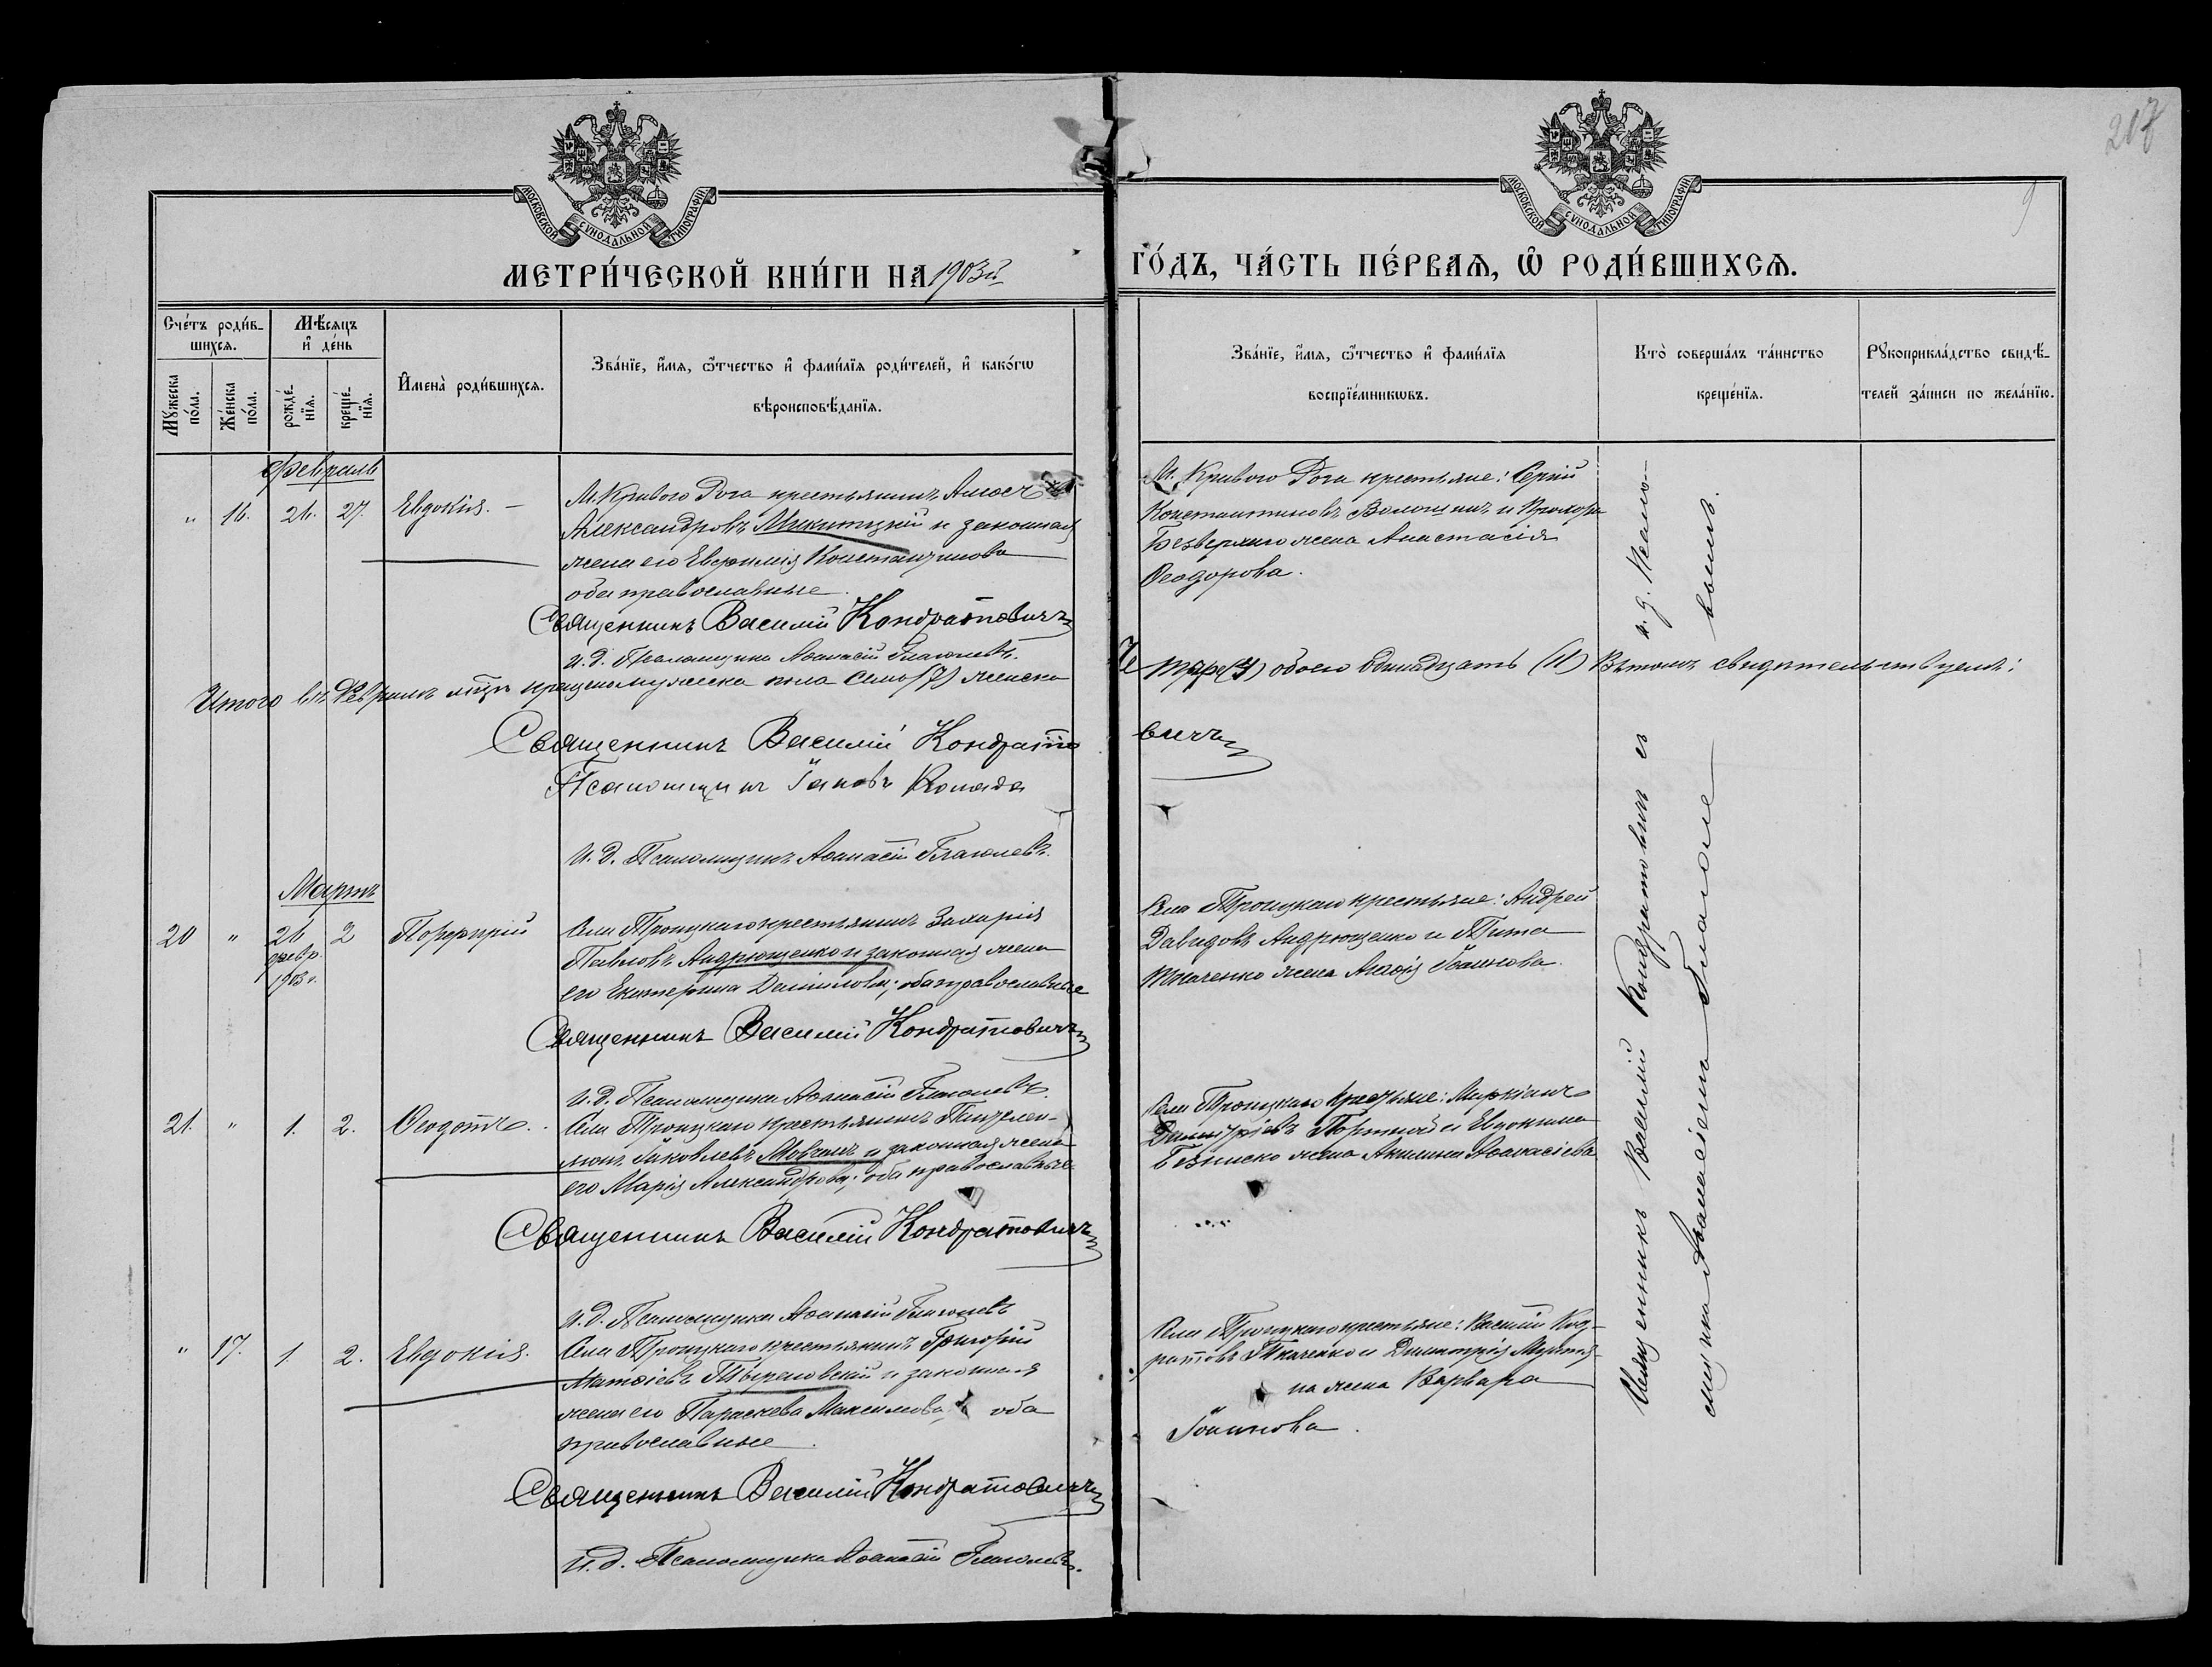 217
9
МОСКОВСКОЙ СѴНОДАЛЬНОЙ ТИПОГРАФІИ
МОСКОВСКОЙ СѴНОДАЛЬНОЙ ТИПОГРАФІИ
МЕТРИ́ЧЕСКОЙ КНИ́ГИ НА 1903й
ГО́ДЪ, ЧА́СТЬ ПЕ́РВАѦ, Ѡ҆ РОДИ́ВШИХСѦ.
Сче́тъ роди́в-
шихсѧ.
Мꙋ́жеска по́ла.
Же́нска по́ла.
Мѣ́сѧцъ
и҆ де́нь
рожде́-
нїѧ.
креще́-
нїѧ.
И҆мена̀ роди́вшихсѧ.
Зва́нїе, и҆́мѧ, ѻ҆́тчество и҆ фами́лїѧ роди́телей, и҆ како́гѡ
вѣроисповѣ́данїѧ.
Зва́нїе, и҆́мѧ, ѻ҆́тчество и҆ фами́лїѧ
воспрїе́мникѡвъ.
Кто̀ соверша́лъ та́инство
креще́нїѧ.
Рꙋкоприкла́дство свидѣ́-
телей за́писи по жела́нїю.
Февраль
" 16. 26. 27. Евдокія. —
М. Кривого Рога крестьянинъ Амосъ
Александровъ Микитицкій и законная
жена его Евфимія Константинова
оба православные.
Священникъ Василій Кондратовичъ
и. д. Псаломщика Аѳанасій Глаголевъ.
М. Кривого Рога крестьяне: Сергій
Константиновъ Волошинъ и Прохора
Безверхаго жена Анастасія
Ѳеодорова.
Итого въ Февралѣ мѣс. крещено мужеска пола семь (7) женска
четыре (4) обоего одинадцать (11) Въ томъ свидѣтельствуемъ:
Священникъ Василій Кондрато
вичъ
Псаломщикъ Іаковъ
И. д. Псаломщика Аѳанасій Глаголевъ.
Мартъ
20 " 26 февр. 1903 г. 2 Порфирій
Села Троицкаго крестьянинъ Захарія
Павловъ Андрющенко и законная жена
его Екатерина Даніилова; оба православные
Священникъ Василій Кондратовичъ
и. д. Псаломщика Аѳанасій Глаголевъ.
Села Троицкаго крестьяне: Андрей
Давидовъ Андрющенко и Тита
Ткаченко жена Іоаннова.
21. " 1. 2. Ѳеодотъ.
Села Троицкаго крестьянинъ Пантелей-
монъ Іаковлевъ Мовчанъ и законная жена
его Марія Александрова; оба православные
Священникъ Василій Кондратовичъ
и. д. Псаломщика Аѳанасій Глаголевъ
Села Троицкаго крестьяне: Маркіанъ
Димитріевъ Портной и Евдокима
жена Акилина Аѳанасіева
" 17. 1. 2. Евдокія.
Села Троицкаго крестьянинъ Григорій
Матѳіевъ и законная
жена его Параскева Максимова, оба
православные.
Священникъ Василій Кондратовичъ
И. д. Псаломщика Аѳанасій Глаголевъ.
Села Троицкаго крестьяне: Василій Код-
ратовъ Ткаченко и Димитрія
на жена Варвара
Іоаннова.
Священникъ Василій Кондратовичъ съ и. д. Псало-
мщика Аѳанасіемъ Глаголе-
вымъ.